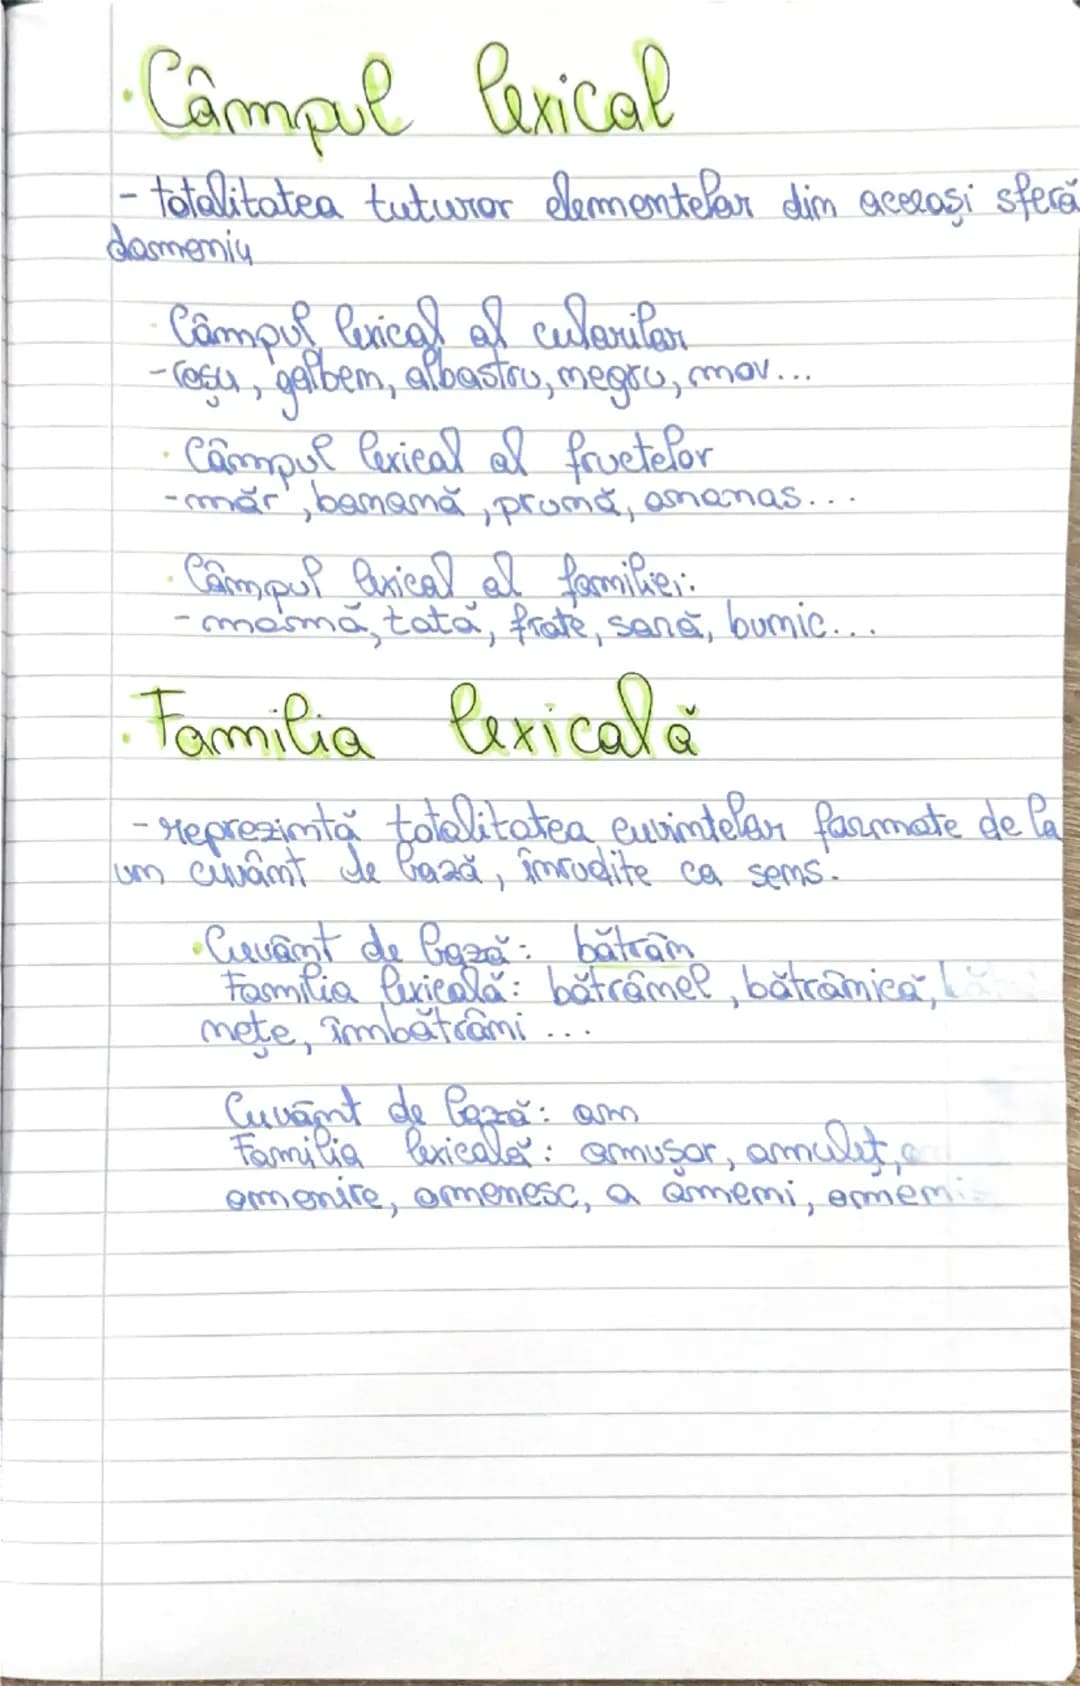 ·Câmpul lexical
- totalitatea tuturor elementelor din aceeași sferă
domeniu
· Câmpul lexical al culorilor
- roșu, galben, albastru, negru, mov...
· Câmpul lexical al fructelor
- măr, banană, prună, ananas...
· Câmpul lexical al familiei:
- mamă, tată, frate, soră, bunic...
· Familia lexicală
- reprezintă totalitatea cuvintelor formate de la
un cuvânt de bază, înrudite ca sens.
· Cuvânt de bază: bătrân
Familia lexicală: bătrânel, bătrânică,
nețe, îmbătrâni ...
Cuvânt de bază: om
Familia lexicală: omușor, omuleț,
omenire, omenesc, a omeni,